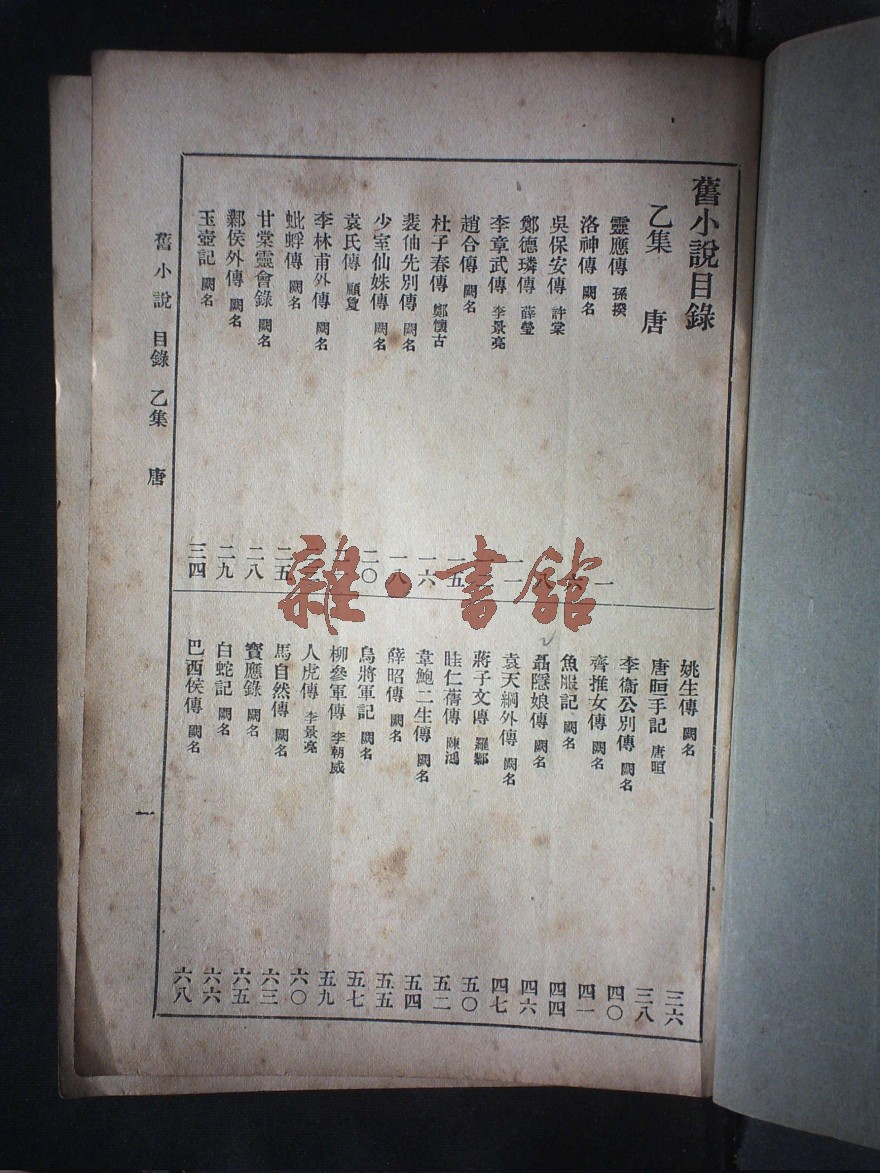 舊小說目錄
乙集 唐
靈應傳 孫揆 一
洛神傳 闕名 六
吳保安傳 許棠 八
鄭德璘傳 薛瑩 一一
李章武傳 李景亮
趙合傳 闕名 一五
杜子春傳 鄭懷古 一六
裴伷先別傳 闕名 一八
少室仙姝傳 闕名 二〇
袁氏傳 顧敻
李林甫外傳 闕名
蚍蜉傳 闕名 二五
甘棠靈會錄 闕名 二八
鄴侯外傳 闕名 二九
玉壺記 闕名 三四
姚生傳 闕名 三六
唐晅手記 唐晅 三八
李衞公別傳 闕名 四〇
齊推女傳 闕名 四一
魚服記 闕名 四四
聶隱娘傳 闕名 四六
袁天綱外傳 闕名 四七
蔣子文傳 羅鄴 五〇
眭仁蒨傳 陳鴻 五二
韋鮑二生傳 闕名 五四
薛昭傳 闕名 五五
烏將軍記 闕名 五七
柳參軍傳 李朝威 五九
人虎傳 李景亮 六〇
馬自然傳 闕名 六三
寶應錄 闕名 六五
白蛇記 闕名 六六
巴西侯傳 闕名 六八
舊小說 目錄 乙集 唐 一
雜·書館